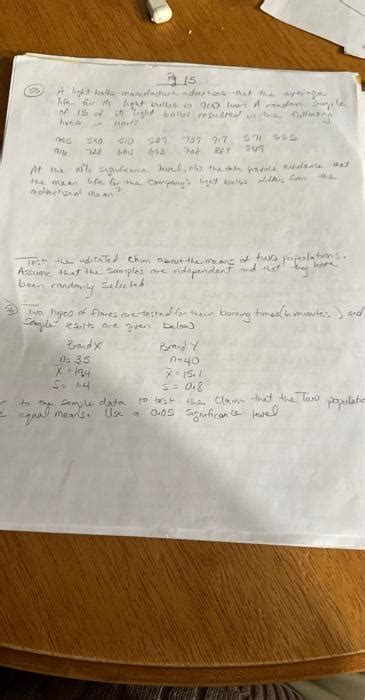 Pg 15
55 A light-bulb manufacture advertises that the average
life for its light bulbs is 900 hours. A random sample
of 15 of its light bulbs resulted in the following
lives in hours.
995 590 510 539 739 917 571 555
916 728 664 693 708 887 849
At the 10% significance level, do the data provide evidence that
the mean life for the company's light bulbs differs from the
advertised mean?
Test the indicated claim about the means of two populations.
Assume that the samples are independent and that they have
been randomly selected.
Two types of flares are tested for their burning times (in minutes) and
sample results are given below
Brand X Brand Y
n = 35 n = 40
x̄ = 19.4 x̄ = 15.1
s = 1.4 s = 0.8
to the sample data to test the claim that the Two populatio
equal means. Use a 0.05 significance level